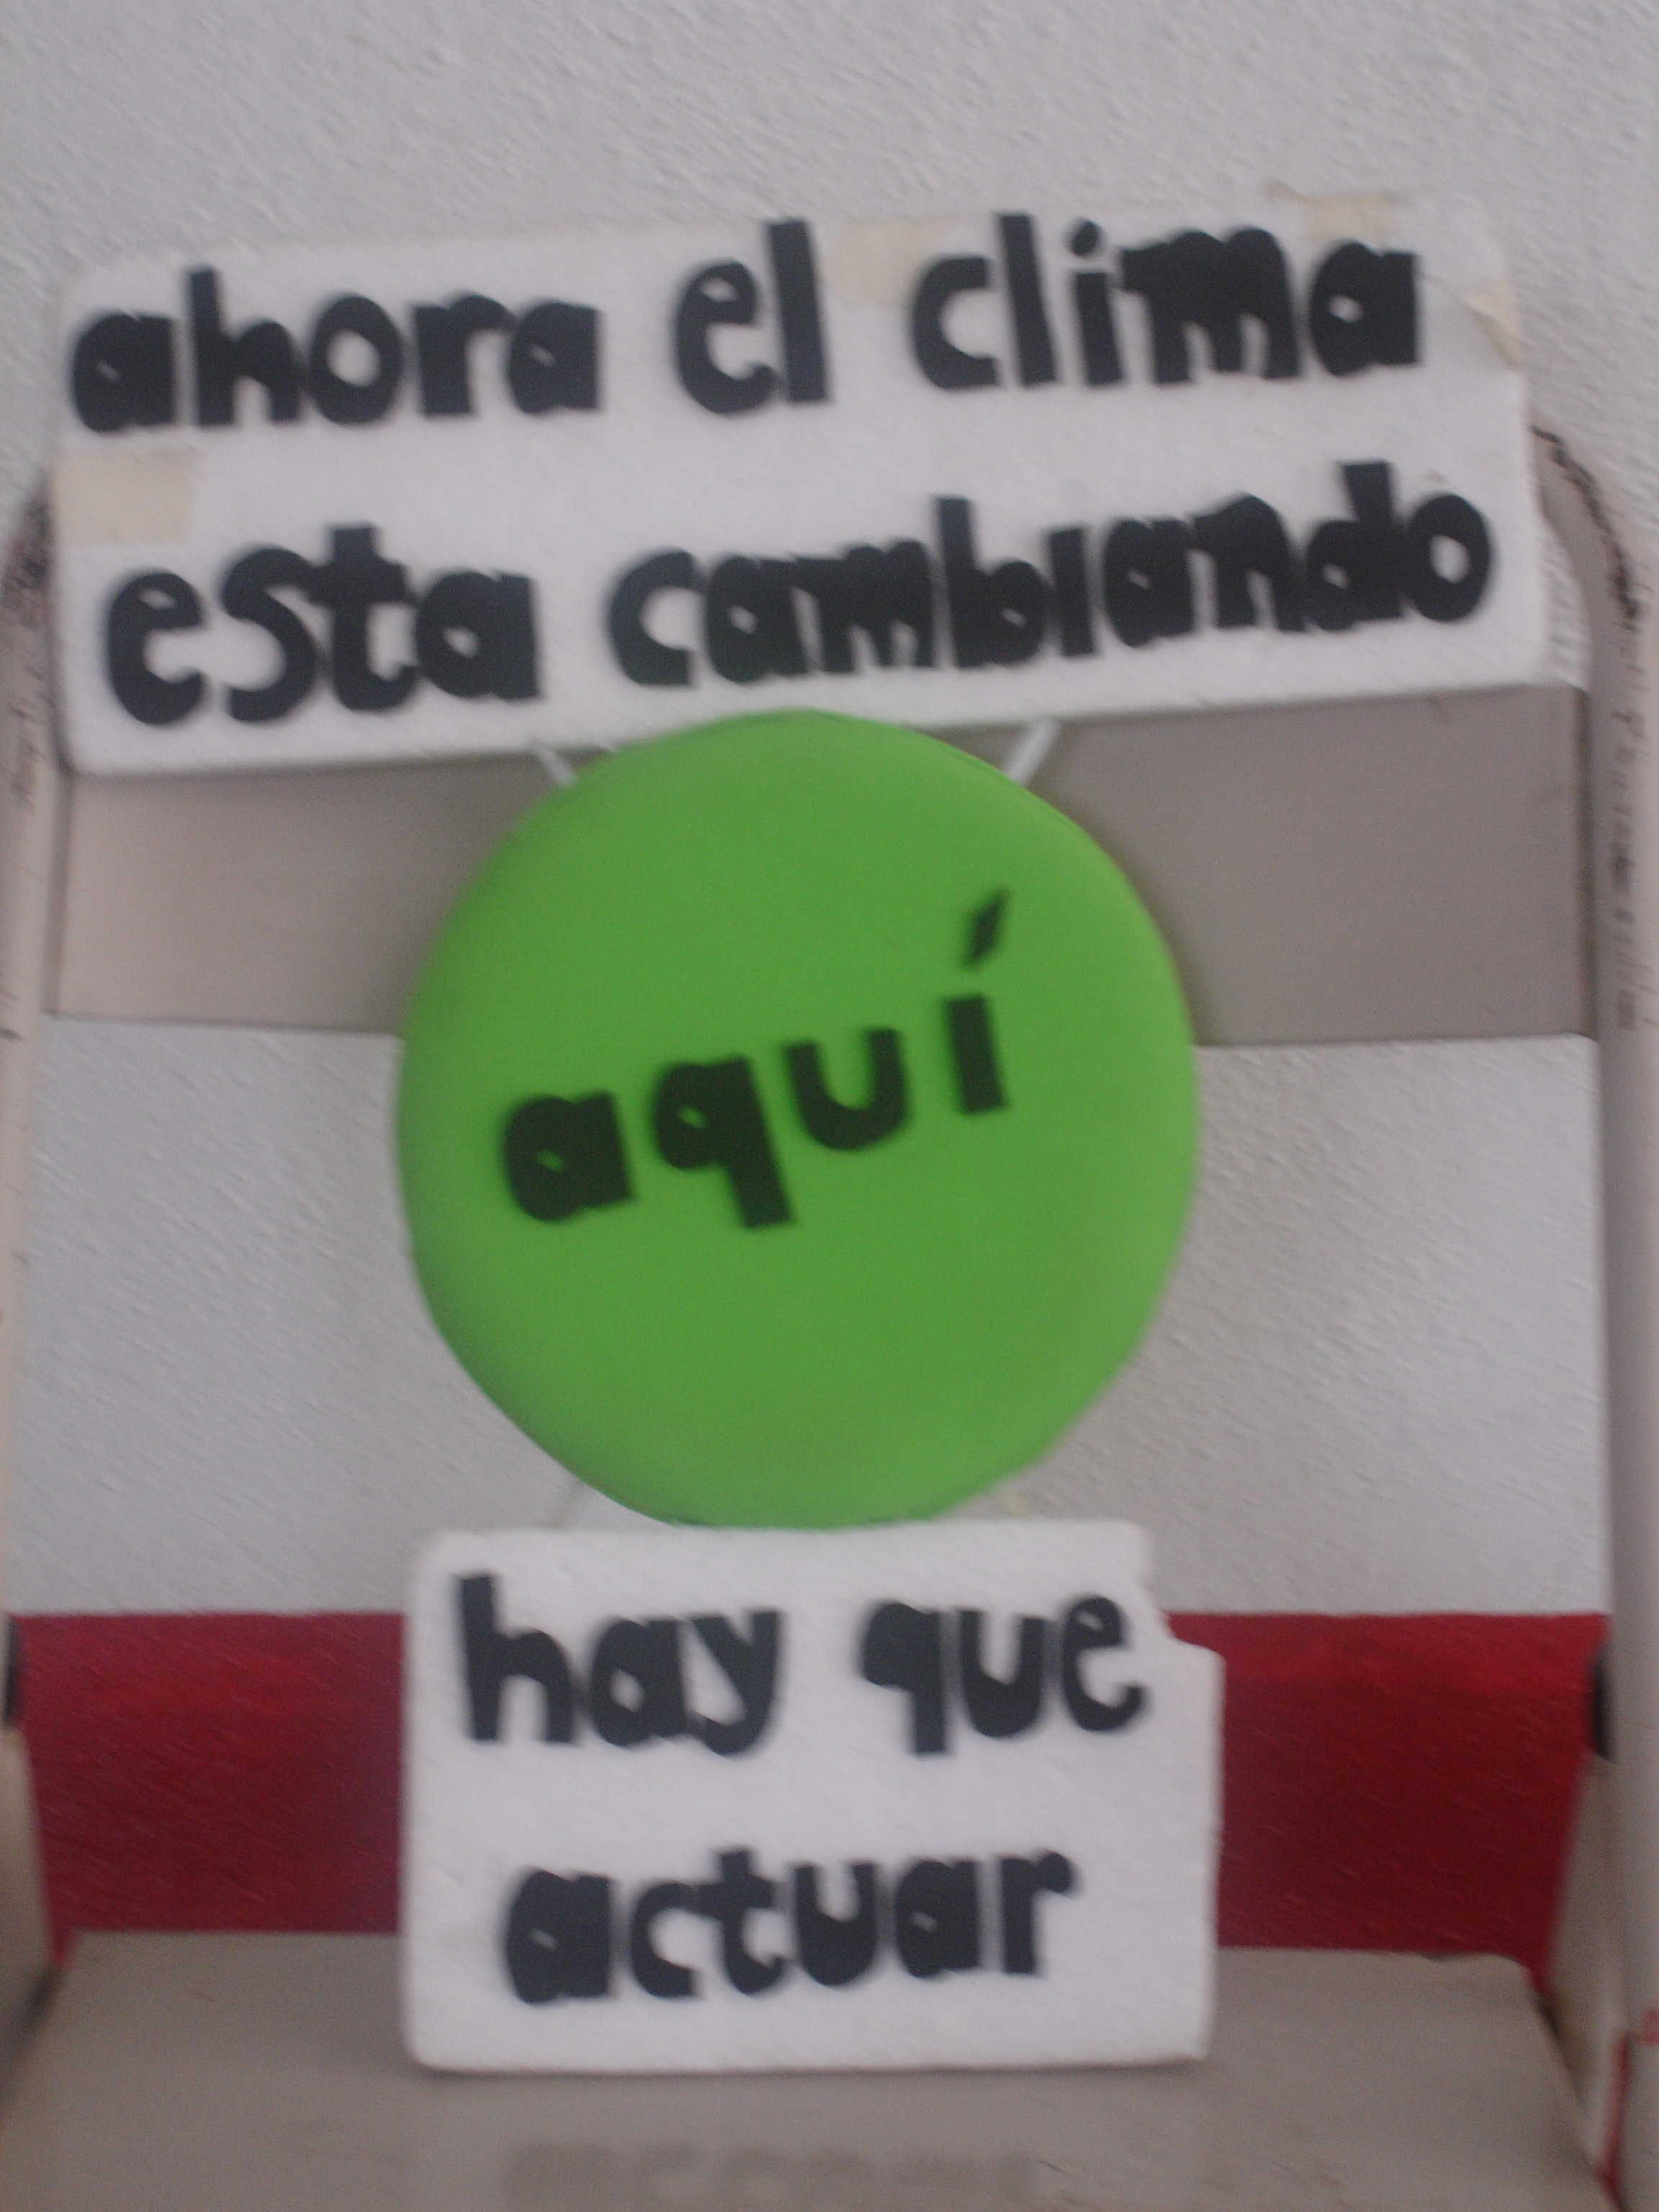 ahora el clima
esta cambiando
aquí
hay que
actuar